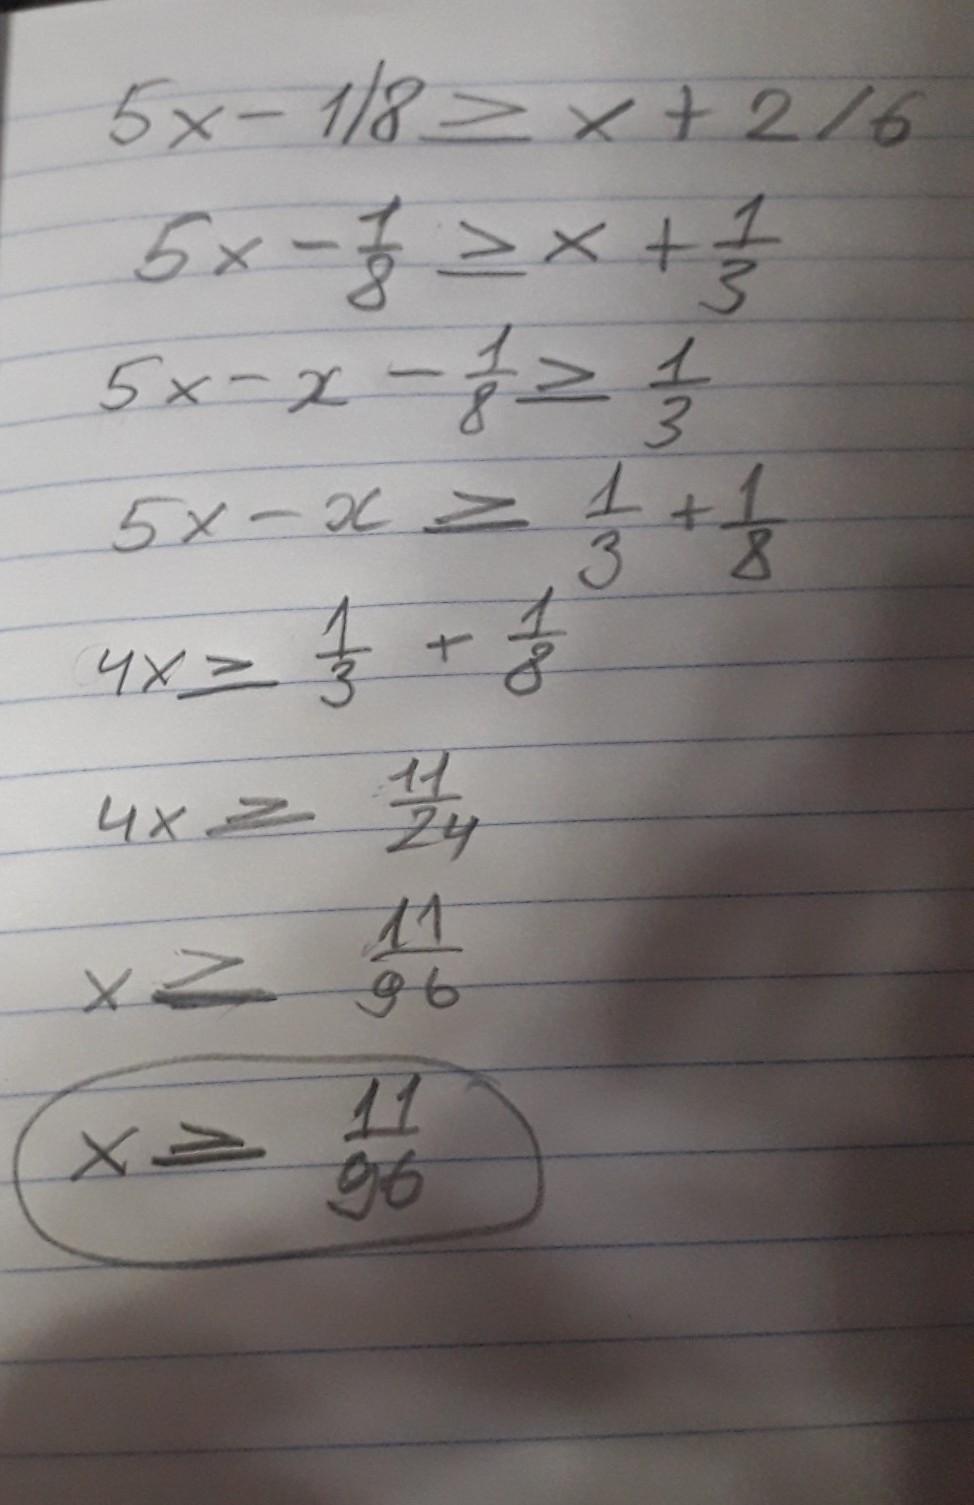 5x - 1/8 ≥ x + 2/6
5x - 1/8 ≥ x + 1/3
5x - x - 1/8 ≥ 1/3
5x - x ≥ 1/3 + 1/8
4x ≥ 1/3 + 1/8
4x ≥ 11/24
x ≥ 11/96
x ≥ 11/96